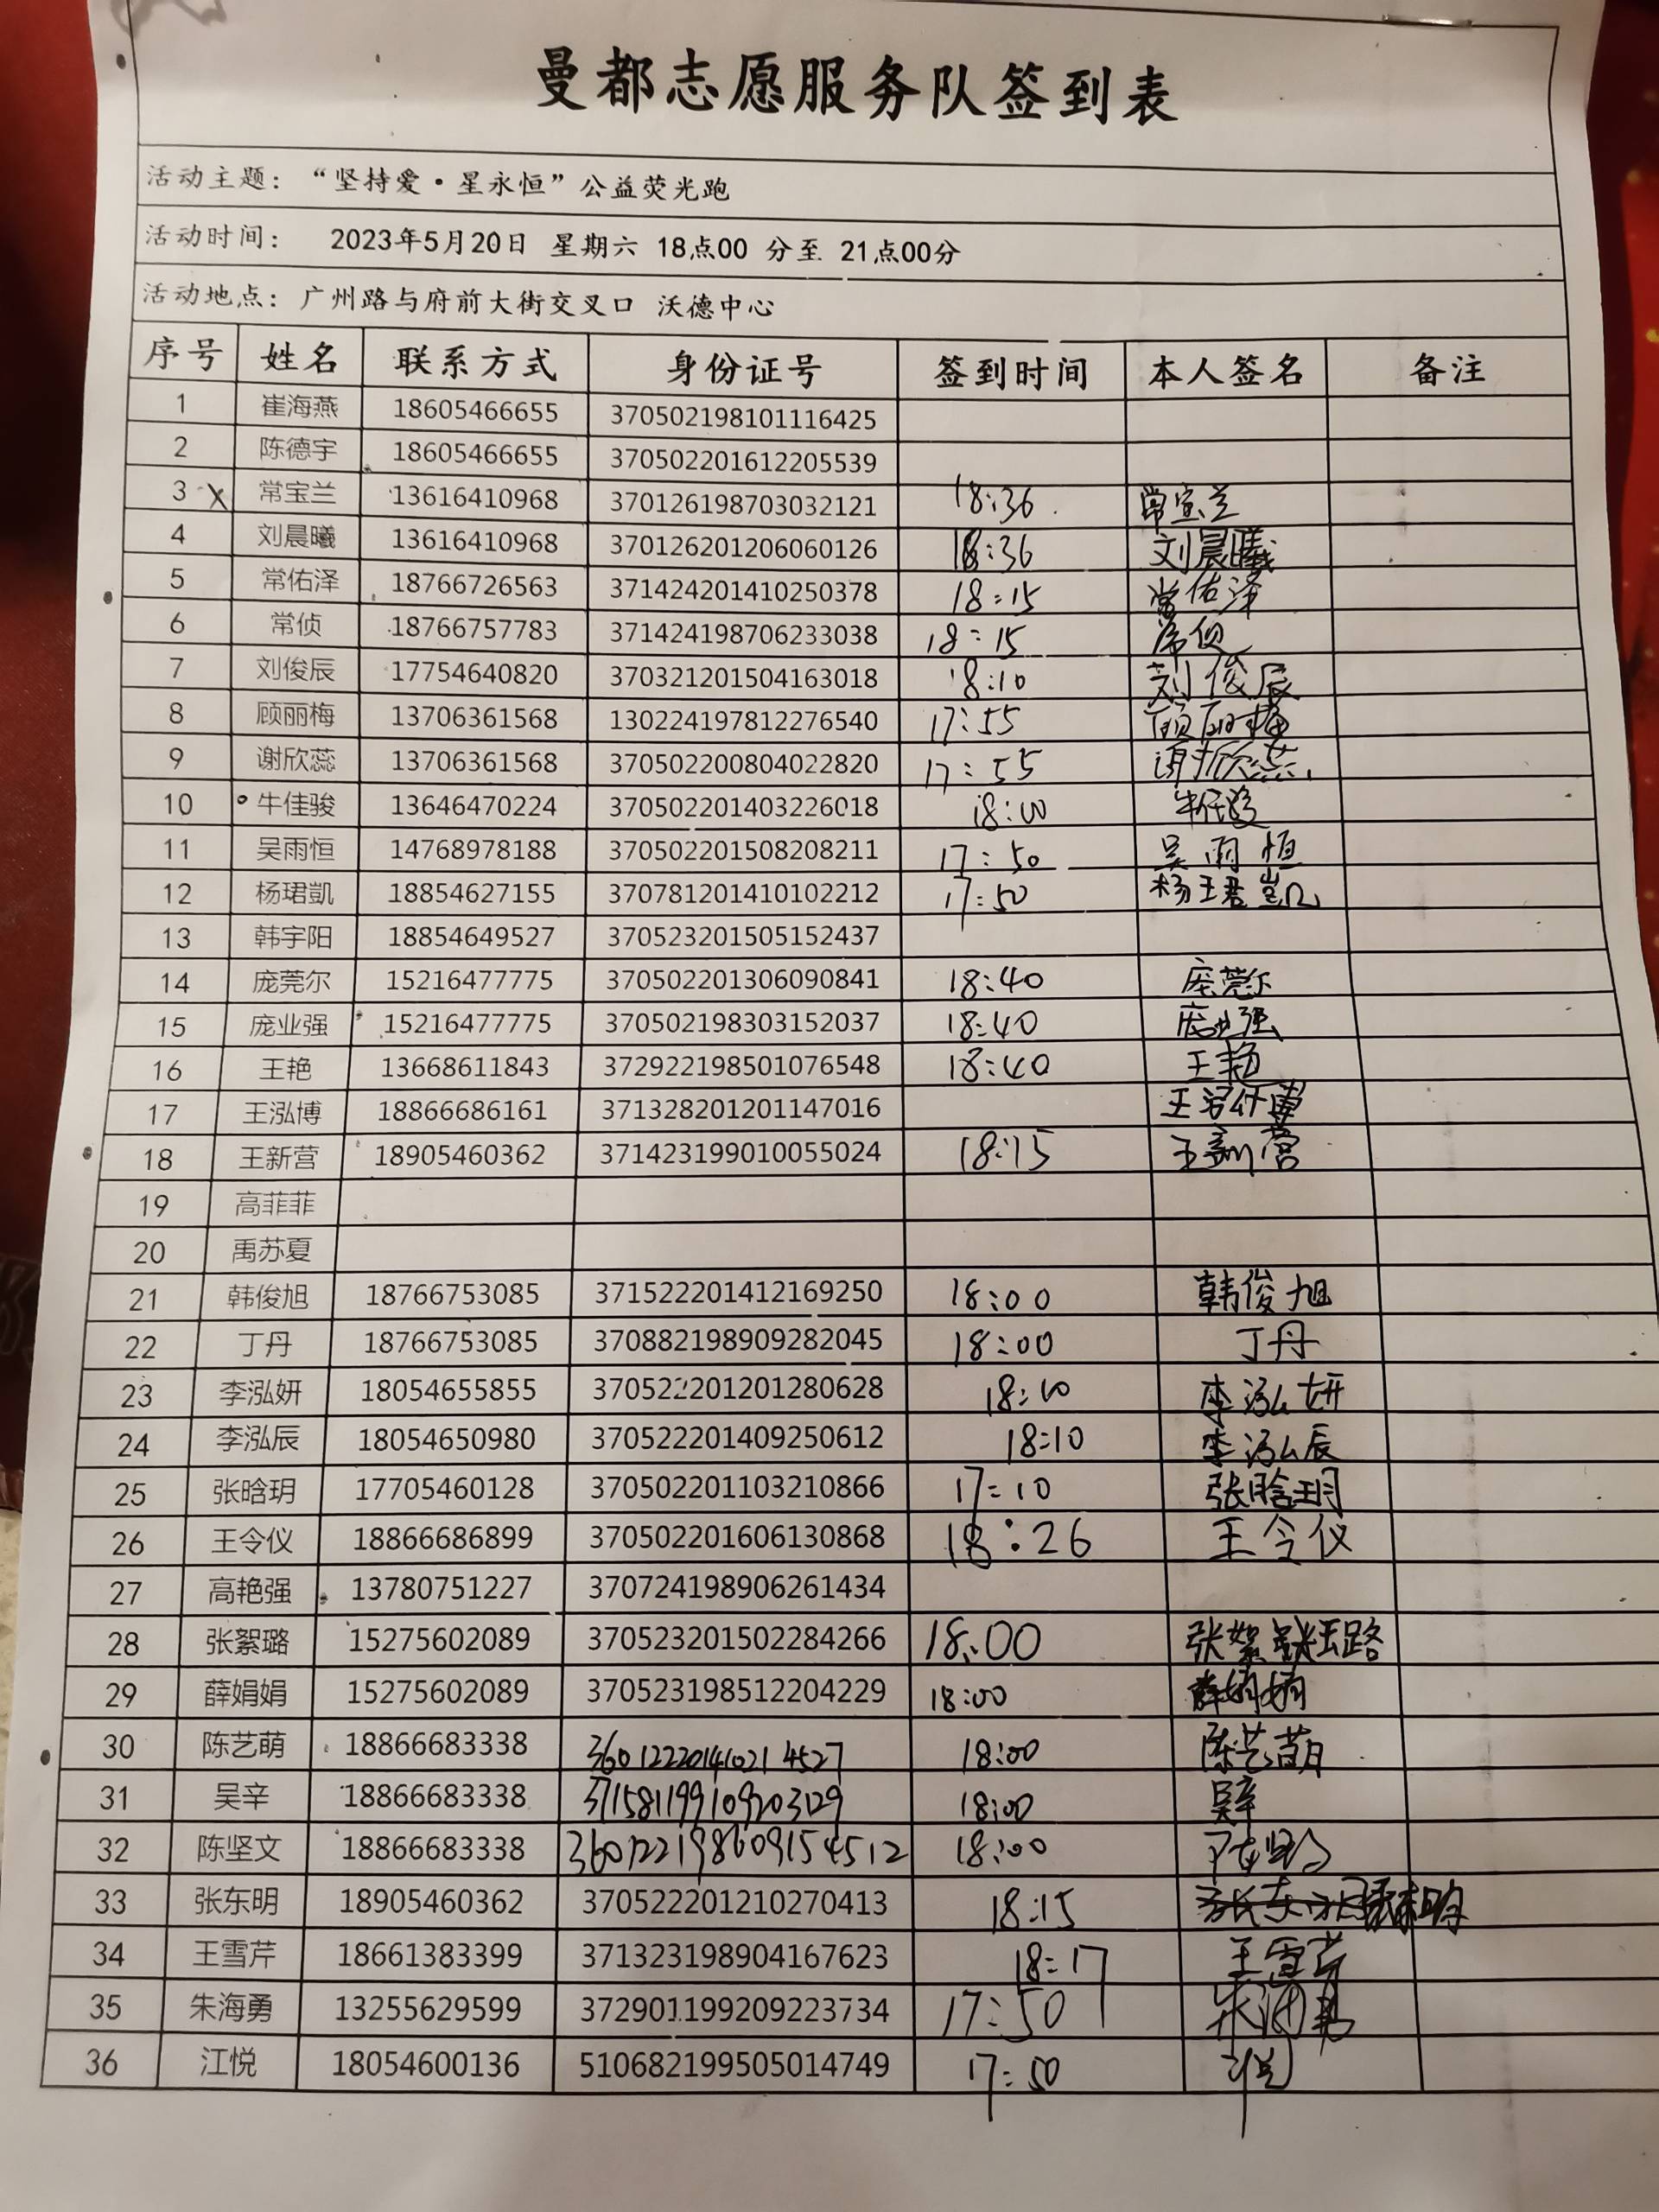 曼都志愿服务队签到表
活动主题：“坚持爱·星永恒”公益荧光跑
活动时间： 2023年5月20日 星期六 18点00 分至 21点00分
活动地点：广州路与府前大街交叉口 沃德中心
序号 姓名 联系方式 身份证号 签到时间 本人签名 备注
1 崔海燕 18605466655 370502198101116425
2 陈德宇 18605466655 370502201612205539
3 X 常宝兰 13616410968 370126198703032121 18:36 常宝兰
4 刘晨曦 13616410968 370126201206060126 18:36 刘晨曦
5 常佑泽 18766726563 371424201410250378 18:15 常佑泽
6 常侦 18766757783 371424198706233038 18:15 常侦
7 刘俊辰 17754640820 370321201504163018 18:10 刘俊辰
8 顾丽梅 13706361568 130224197812276540 17:55 顾丽梅
9 谢欣蕊 13706361568 370502200804022820 17:55 谢欣蕊
10 牛佳骏 13646470224 370502201403226018 18:00 牛佳骏
11 吴雨恒 14768978188 370502201508208211 17:50 吴雨恒
12 杨珺凯 18854627155 370781201410102212 17:50 杨珺凯
13 韩宇阳 18854649527 370523201505152437
14 庞莞尔 15216477775 370502201306090841 18:40 庞莞尔
15 庞业强 15216477775 370502198303152037 18:40 庞业强
16 王艳 13668611843 372922198501076548 18:40 王艳
17 王泓博 18866686161 371328201201147016 王泓博
18 王新营 18905460362 371423199010055024 18:15 王新营
19 高菲菲
20 禹苏夏
21 韩俊旭 18766753085 371522201412169250 18:00 韩俊旭
22 丁丹 18766753085 370882198909282045 18:00 丁丹
23 李泓妍 18054655855 370522201201280628 18:10 李泓妍
24 李泓辰 18054650980 370522201409250612 18:10 李泓辰
25 张晗玥 17705460128 370502201103210866 17:10 张晗玥
26 王令仪 18866686899 370502201606130868 18:26 王令仪
27 高艳强 13780751227 370724198906261434
28 张絮璐 15275602089 370523201502284266 18:00 张絮璐
29 薛娟娟 15275602089 370523198512204229 18:00 薛娟娟
30 陈艺萌 18866683338 360122201410214527 18:00 陈艺萌
31 吴辛 18866683338 371581199109203129 18:00 吴辛
32 陈坚文 18866683338 360122198609154512 18:00 陈坚文
33 张东明 18905460362 370522201210270413 18:15 张东明
34 王雪芹 18661383399 371323198904167623 18:17 王雪芹
35 朱海勇 13255629599 372901199209223734 17:50 朱海勇
36 江悦 18054600136 510682199505014749 17:50 江悦